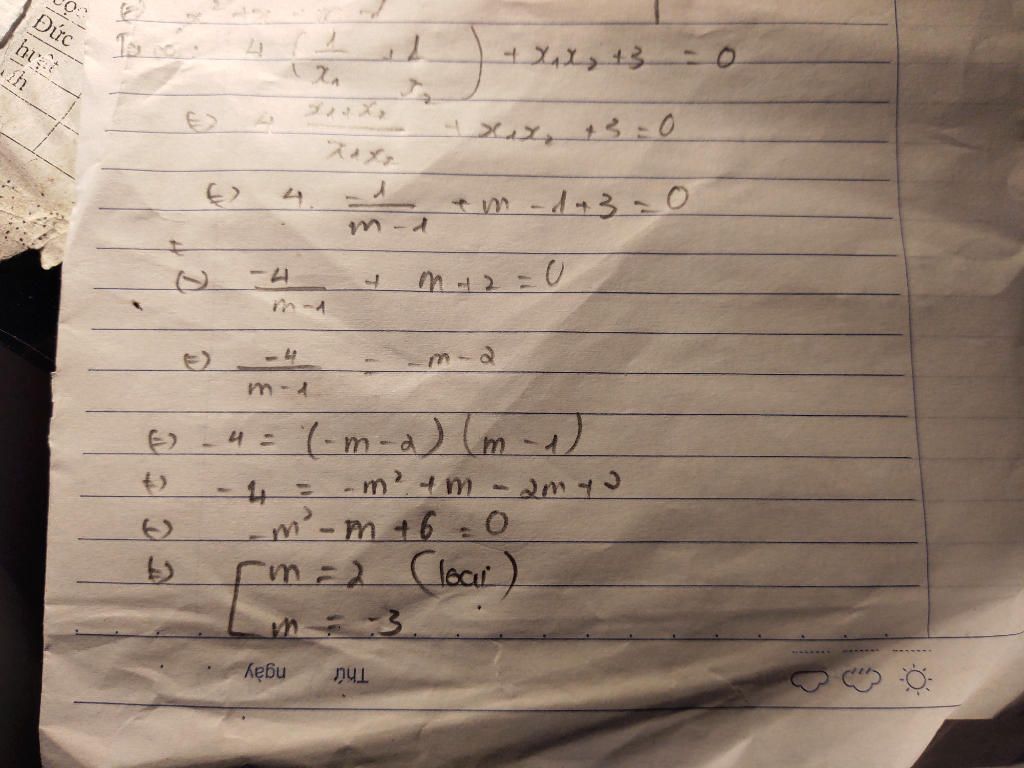 Đức
Ta có: 4 (1/x₁ + 1/x₂) + x₁x₂ + 3 = 0
⇔ 4 (x₁+x₂)/(x₁x₂) + x₁x₂ + 3 = 0
⇔ 4. -1/(m-1) + m - 1 + 3 = 0
⇔ -4/(m-1) + m + 2 = 0
⇔ -4/(m-1) = -m - 2
⇔ -4 = (-m-2)(m-1)
⇔ -4 = -m² + m - 2m + 2
⇔ -m² - m + 6 = 0
⇔ [ m = 2 (loại)
m = -3
Thứ ngày